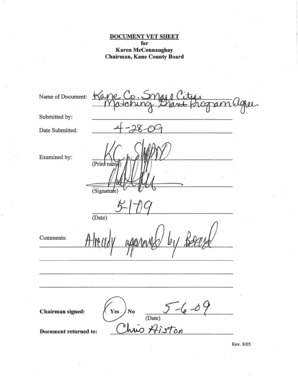 DOCUMENT VET SHEET
for
Karen McConnaughay
Chairman, Kane County Board
Name of Document: Kane Co. Small Cities
Matching Grant Program Agree.
Submitted by:
Date Submitted: 4-28-09
Examined by:
(Print name)
(Signature)
5-1-09
(Date)
Comments: Already approved by Board
Chairman signed: Yes No 5-6-09
(Date)
Document returned to: Chris Aiston
Rev. 8/05